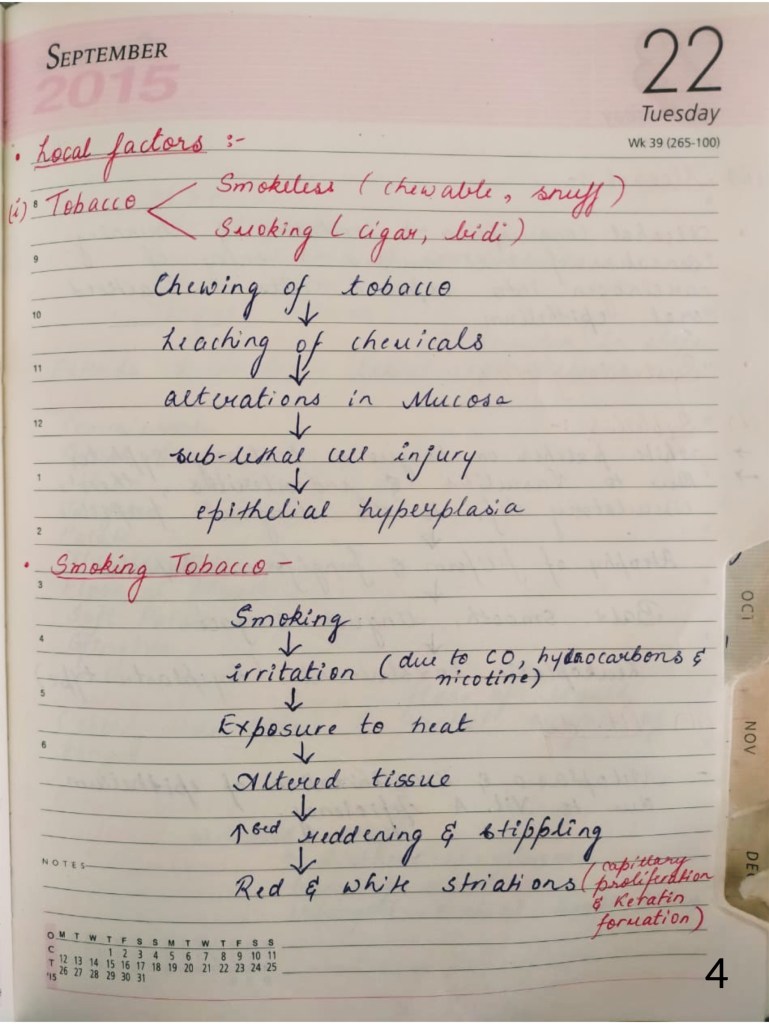 SEPTEMBER
2015
22
Tuesday
Wk 39 (265-100)
• Local factors :-
(i) 8 Tobacco
Smokeless ( chewable, snuff )
Smoking ( cigar, bidi )
9
Chewing of tobacco
↓
10
Leaching of chemicals
↓
11
alterations in Mucosa
↓
12
sub-lethal cell injury
↓
1
epithelial hyperplasia
2
• Smoking Tobacco -
3
Smoking
↓
4
irritation ( due to CO, hydrocarbons &
nicotine)
↓
5
Exposure to heat
↓
6
Altered tissue
↓
↑sed reddening & stippling
↓
NOTES
Red & white striations ( capillary
proliferation
& Keratin
formation )
OCT
NOV
DE
OCT '15
M T W T F S S M T W T F S S
1 2 3 4 5 6 7 8 9 10 11
12 13 14 15 16 17 18 19 20 21 22 23 24 25
26 27 28 29 30 31
4